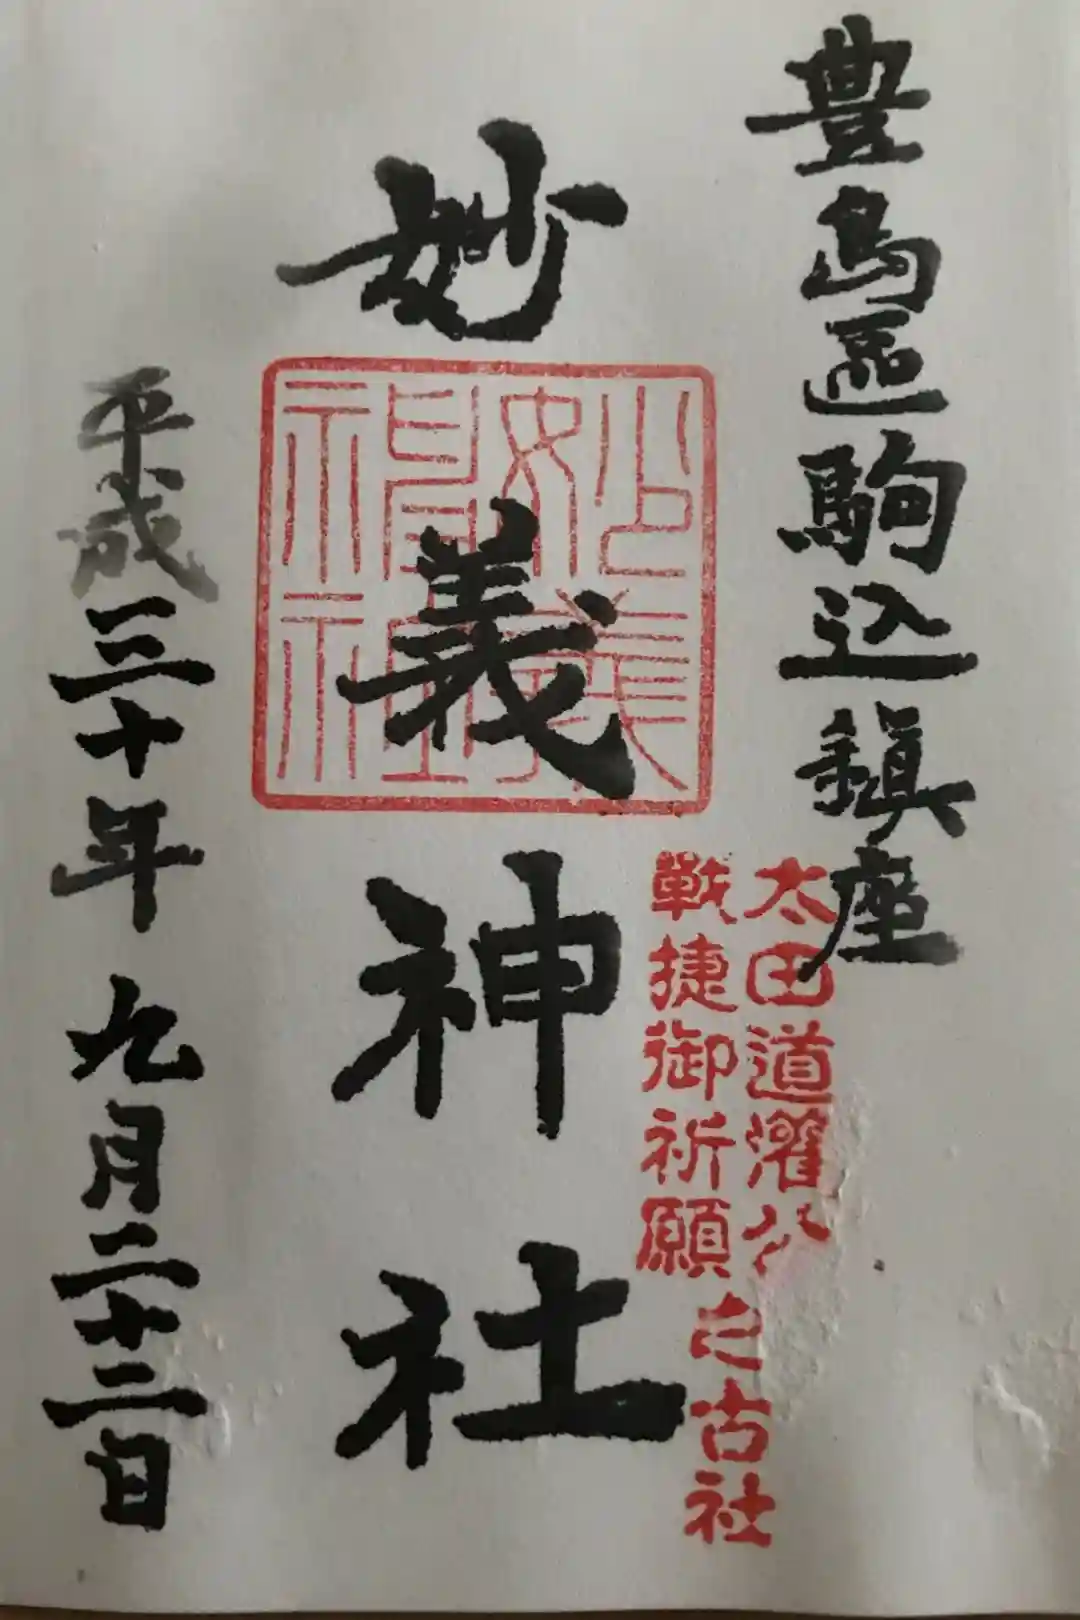 豊島區駒込鎮座
太田道灌公
戰捷御祈願
之古社
妙義神社
妙義
神社
平成三十年九月二十二日